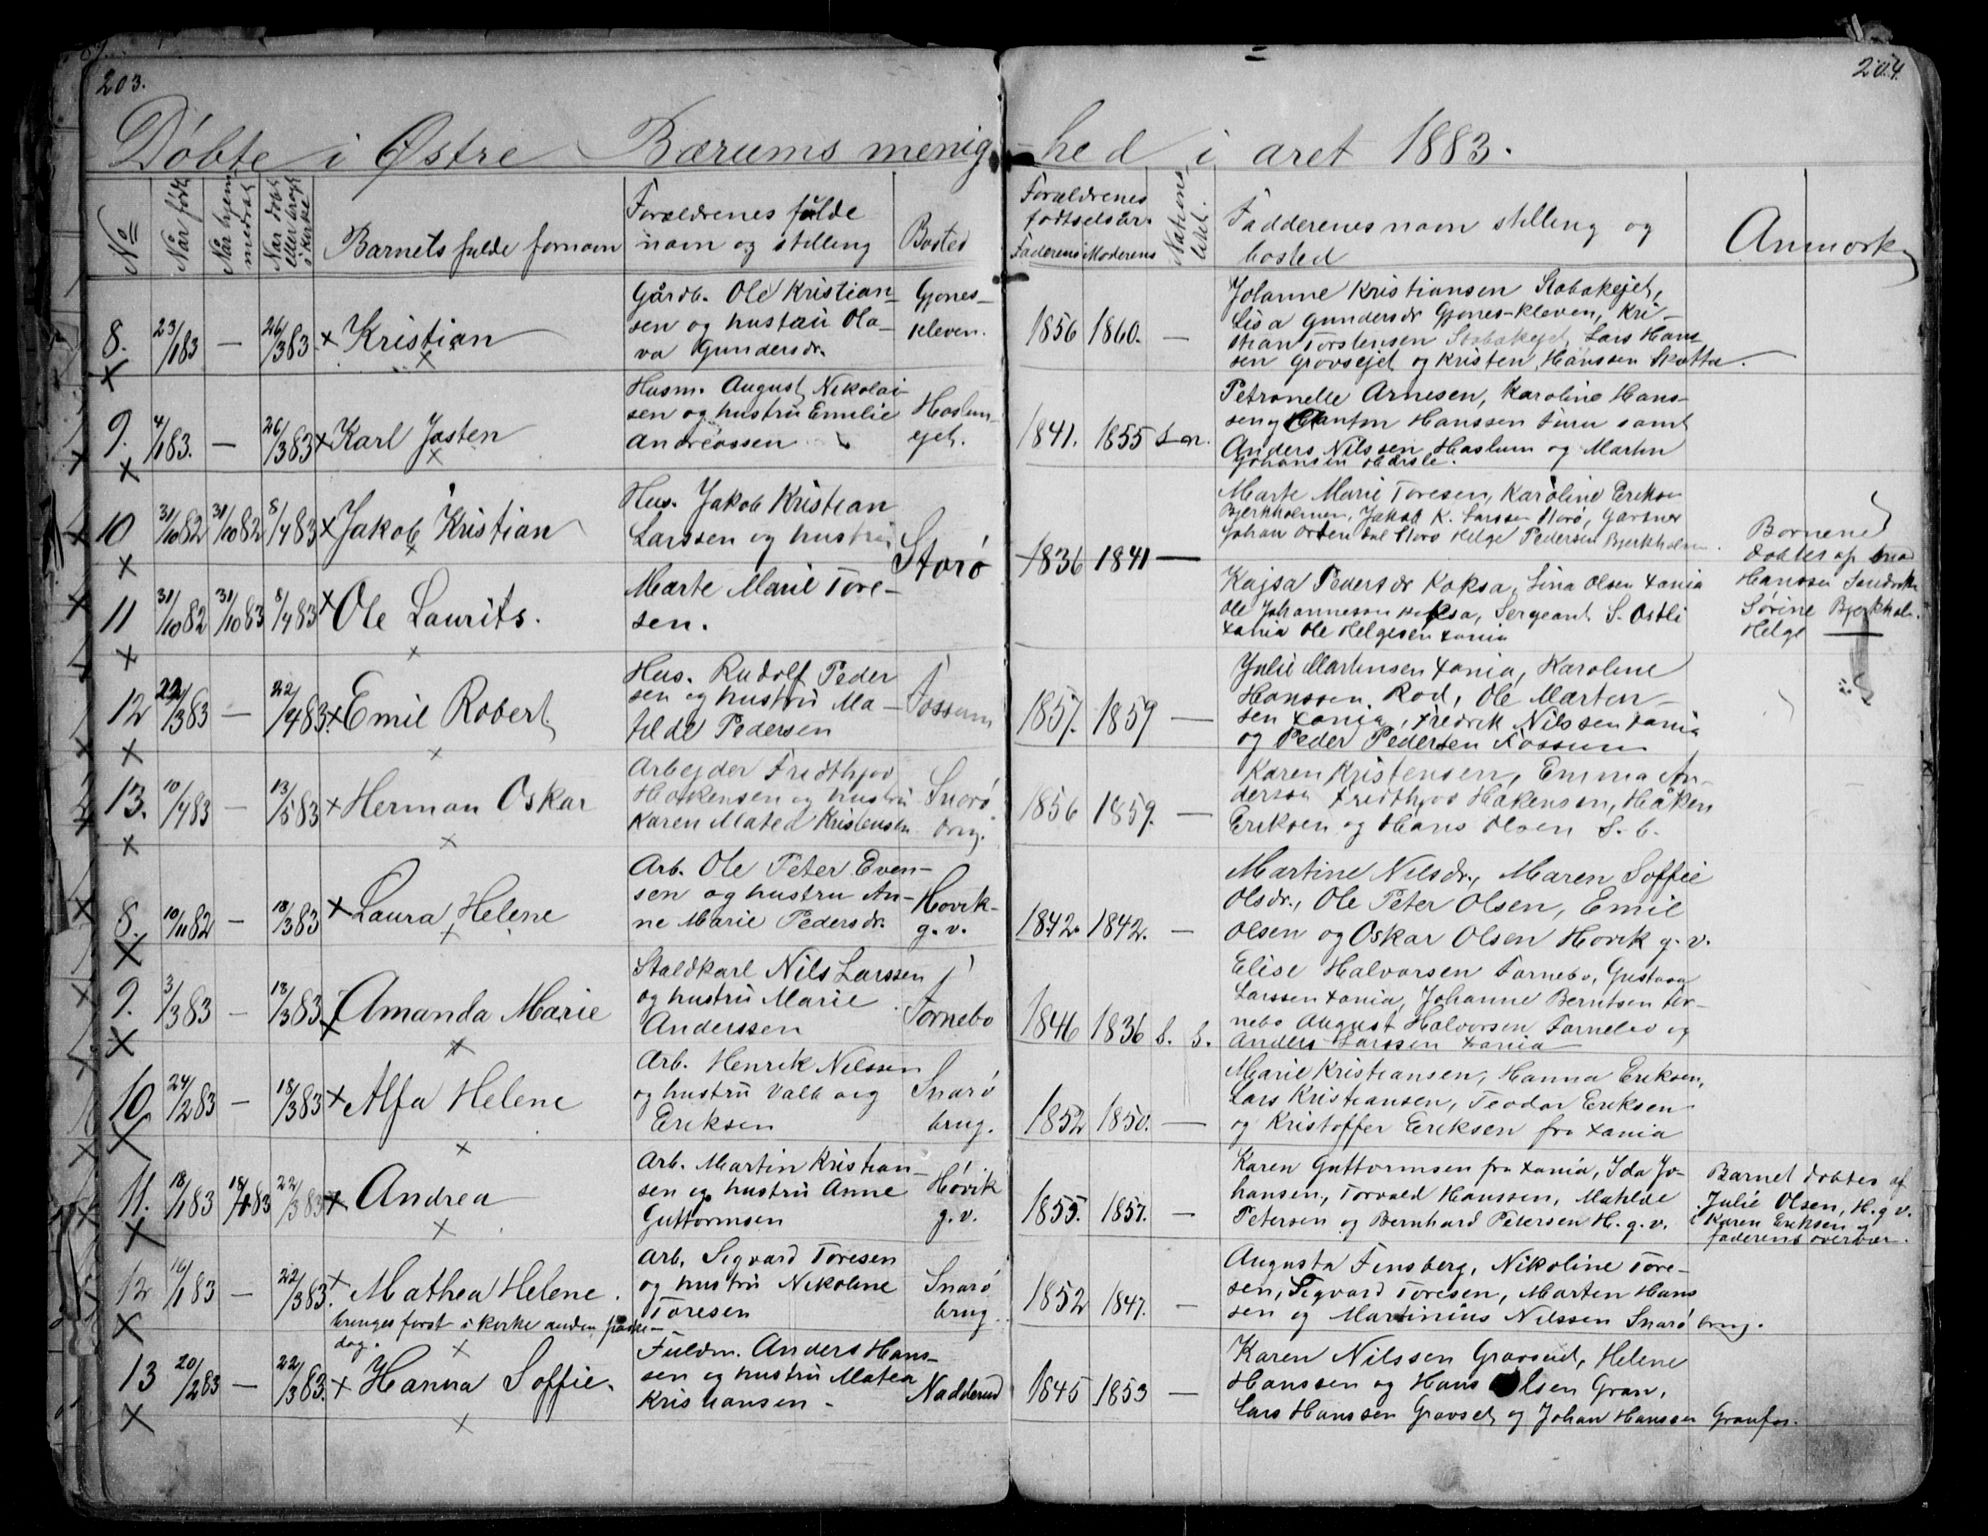 203.
204.
Döbte i Østre Bærums menig-
-hed i aret 1883.
No
Når född
Når hjem
medöbt
Når döbt
eller bragt
i kirke
Barnets fulde fornavn
Forældrenes fulde
navn og stilling
Bosted
Forældrenes
fødtselsår.
Faderens Moderens
Faddernes navn stilling og
bosted
Anmærk
8. 23/1 83 — 26/3 83 × Kristian
Gårdb. Ole Kristian-
sen og hustru Ola-
va Gundersdr.
Gjones-
kleven.
1856 1860. —
Johanne Kristiansen Stabækejet,
Lisa Gundersdr Gjones-kleven, Kri-
stian Torstensen Stabækejet, Lars Hans-
sen Grovsejet og Kristen Hanssen Skotta.
9. 4/1 83. — 26/3 83 × Karl Josten
Husm. August Nikolai
sen og hustru Emilie
Andreassen
Haslum-
ejet.
1841. 1855
Petronelle Arnesen, Karoline Hans-
sen, Anton Hanssen Furu samt
Anders Nilssen Haslum og Martin
Johansen
10 31/10 82 31/10 82 8/4 83 × Jakob Kristian
Hus. Jakob Kristian
Larssen og hustru
Storö
1836 1841 —
Marte Marie Toresen, Karoline Eriksen
Bjerkholmen, Jakob K. Larssen Storö, Gartner
Johan Storö Helge Pedersen Bjerkholm.
Bornene
döbtes af
Hanssen Sandvika
Sörine Bjerkhol.
Helge —
11 31/10 82 31/10 83 8/4 83 × Ole Laurits.
Marte Marie Tore-
sen.
Kajsa Pedersdr Koksa, Lina Olsen Xania
Ole Johannessen Koksa, Sergeant S. Ostli
Xania Ole Helgesen Xania
12 22/3 83 — 22/4 83. × Emil Robert
Hus. Rudolf Peder
sen og hustru Ma-
tilde Pedersen
Fossum
1857. 1859 —
Julie Martinsen Xania, Karoline
Hanssen Rod, Ole Marten-
sen Xania, Fredrik Nilssen Xania
og Peder Pedersen Fossum
13. 10/4 83 — 13/5 83 × Herman Oskar
Arbejder Fridthjov
Hakensen og hustru
Karen Matea Kristensen
Snarö
brug.
1856 1859. —
Karen Kristensen, Emma An-
derssen Fridthjov Hakensen, Håken
Eriksen og Hans Olsen S. b.
8. 10/11 82 — 18/3 83 × Laura Helene
Arb. Ole Peter Even-
sen og hustru An-
ne Marie Pedersdr.
Hovik-
g. v.
1842. 1842. —
Martine Nilsdr., Maren Soffie
Olsdr., Ole Peter Olsen, Emil
Olsen og Oskar Olsen Hovik g. v.
9. 3/3 83 — 18/3 83 × Amanda Marie
Staldkarl Nils Larssen
og hustru Marie
Anderssen
Fornebo
1846 1836
Elise Halvorsen Fornebo, Gustava
Larssen Xania, Johanne Berntsen For-
nebo August Halvorsen Fornebo og
Anders Larssen Xania
10. 24/2 83 — 18/3 83 × Alfa Helene
Arb. Henrik Nilssen
og hustru Valborg
Eriksen
Snarö
brug.
1852 1850. —
Marie Kristiansen, Hanna Eriksen,
Lars Kristiansen, Teodor Eriksen
og Kristoffer Eriksen fra Xania
11. 18/1 83 18/1 83 22/3 83 × Andrea
Arb. Martin Kristian-
sen og hustru Anne
Guttormsen
Hövik
g. v.
1855. 1857. —
Karen Guttormsen fra Xania, Ida Jo-
hansen, Torvald Hanssen, Matilde
Petersen og Bernhard Petersen H. g. v.
Barnet döbtes af
Julie Olsen, H. g. v.
i Karen Eriksen og
faderens overvær.
12 16/1 83 — 22/3 83. × Mathea Helene.
bringes först i kirke anden påske-
dag.
Arb. Sigvard Toresen
og hustru Nikoline
Toresen
Snarö
brug.
1852 1847. —
Augusta Finsberg, Nikoline Tore-
sen, Sigvard Toresen, Marten Hans
sen og Martinius Nilssen Snarö brug.
13 20/2 83 — 22/3 83. × Hanna Soffie.
Fuldm. Anders Hans-
sen og hustru Matea
Kristiansen —
Nadderud
1845 1853 —
Karen Nilssen Gravseid, Helene
Hanssen og Hans Olsen Gran,
Lars Hanssen Gravset og Johan Hanssen Granfos.